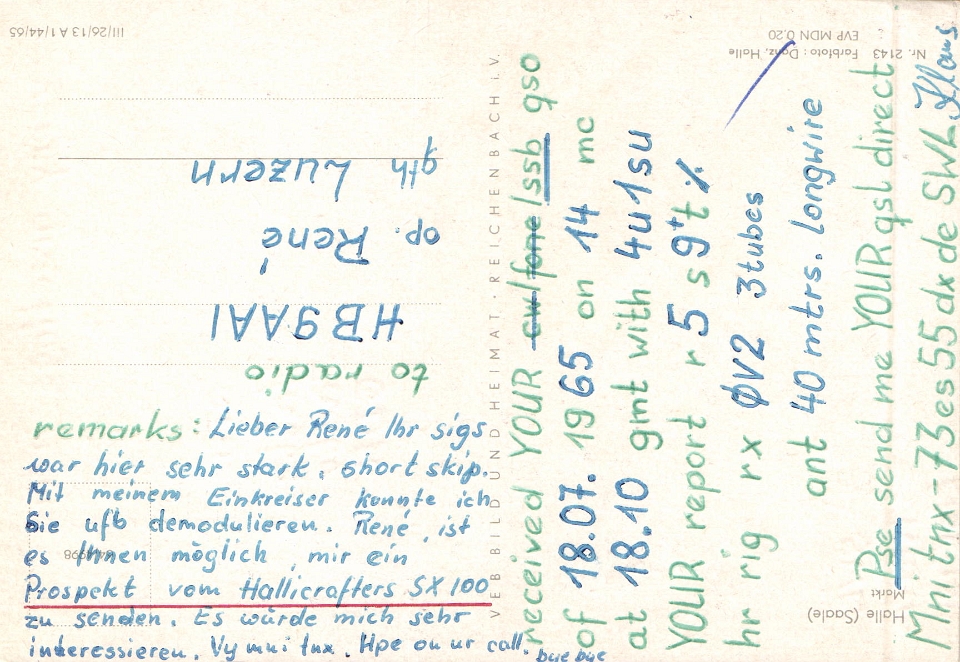 III/26/13 A 1/44/65
to radio
HB9AAI
op. René
qth Luzern
remarks: Lieber René Ihr sigs
war hier sehr stark, short skip.
Mit meinem Einkreiser konnte ich
Sie ufb demodulieren. René, ist
es Ihnen möglich, mir ein
Prospekt vom Hallicrafters SX 100
zu senden. Es würde mich sehr
interessieren. Vy mni tnx. Hpe on ur call.
bye bye
VEB BILD UND HEIMAT · REICHENBACH I. V.
received YOUR cw/fone/ssb qso
of 18.07. 1965 on 14 mc
at 18.10 gmt with 4u1su
YOUR report r 5 s 9+ t %
hr rig rx 0V2 3tubes
ant 40 mtrs. longwire
Pse send me YOUR qsl direct
Mni tnx-73es55 dx de SWL Klaus
Halle (Saale)
Markt
Nr. 2143 Farbfoto: Danz, Halle
EVP MDN 0,20